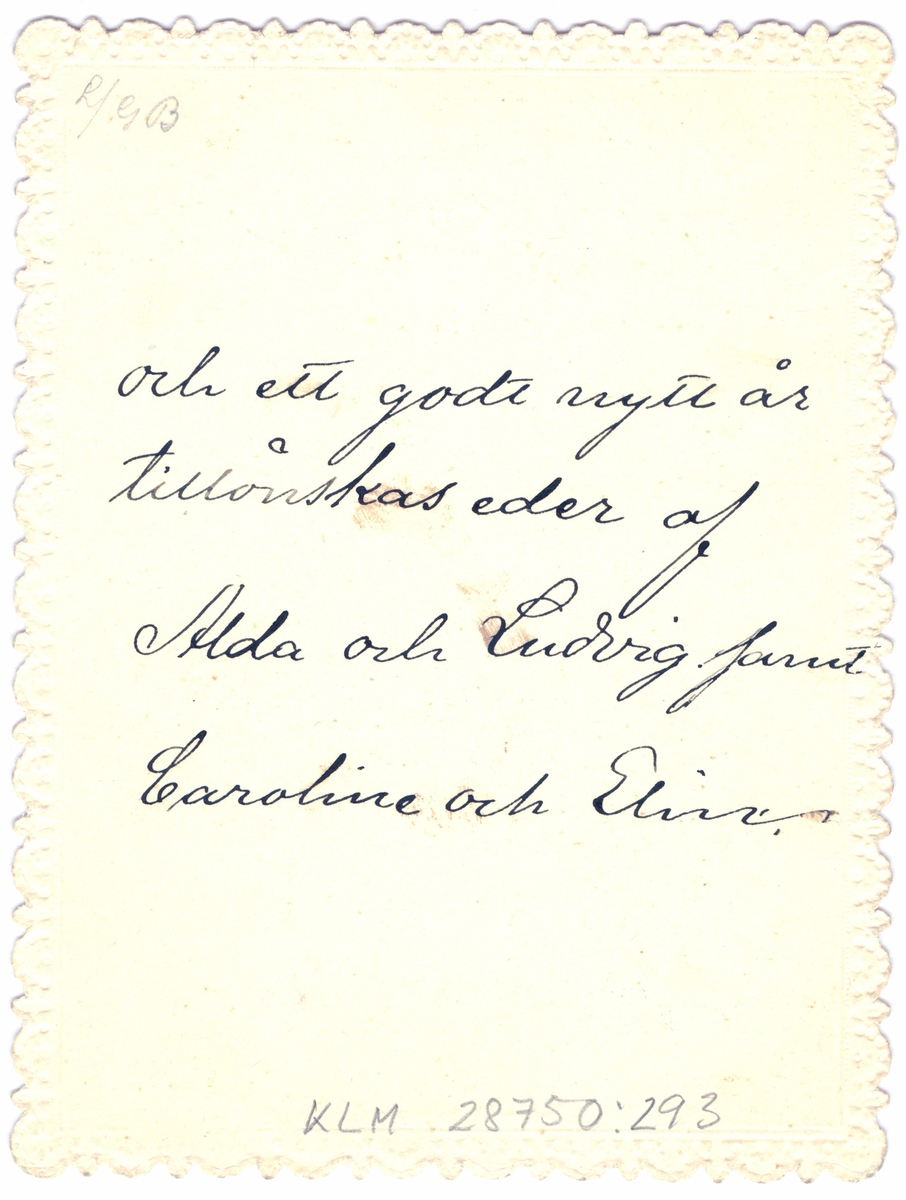 och ett godt nytt år
tillönskas eder af
Alda och Ludvig samt
Caroline och Elin.
KLM 28750:293